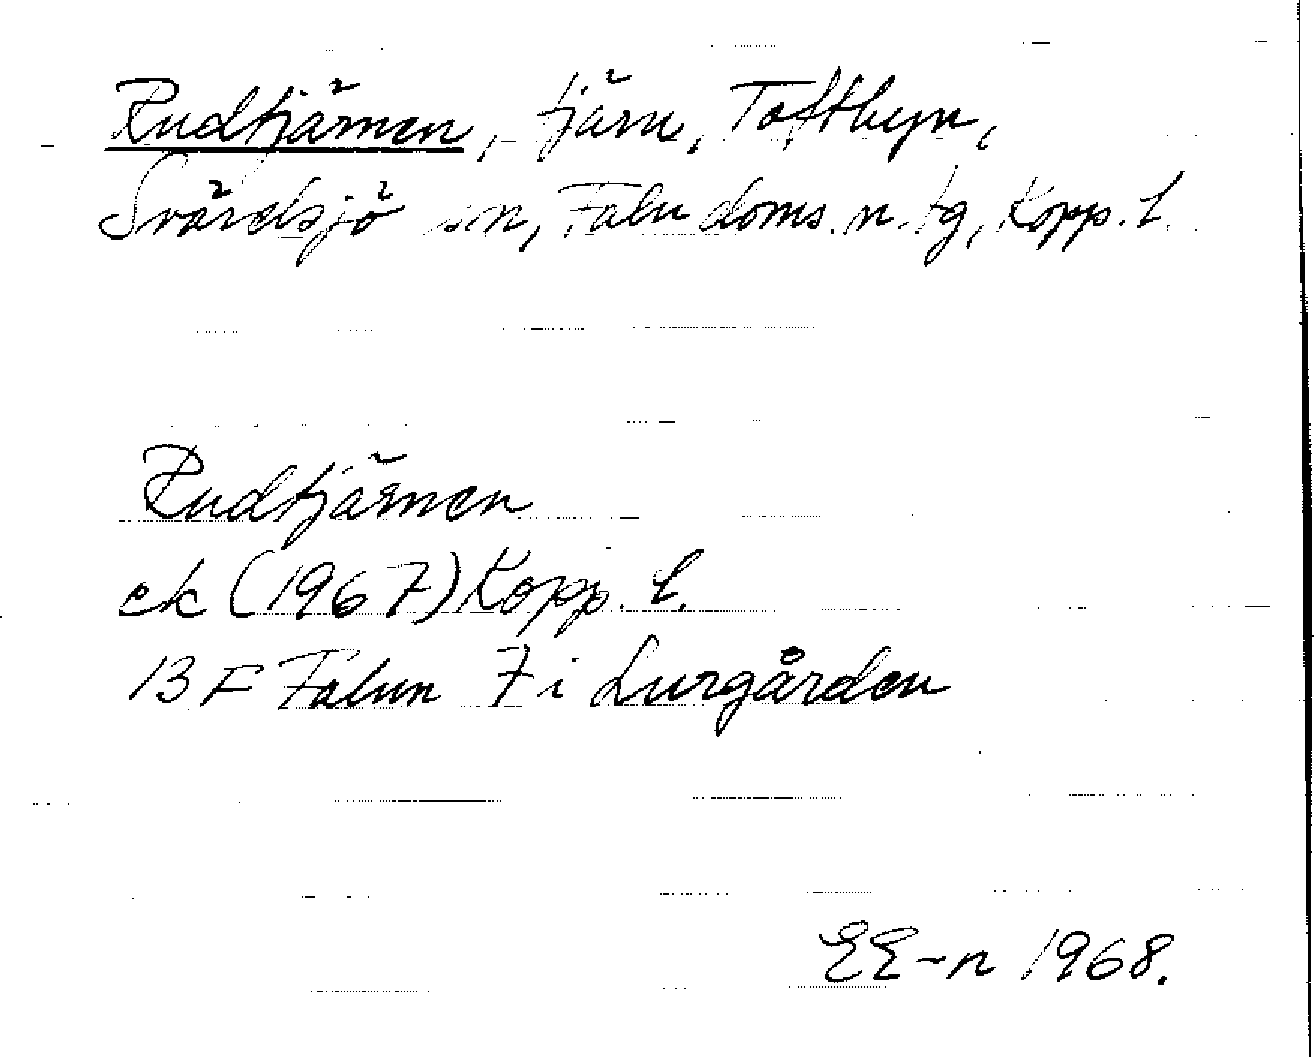 Rudtjärnen, tjärn, Toftbyn,
Svärdsjö sn, Falu doms. n. tg, Kopp. l.
Rudtjärnen
ek (1967) Kopp. l.
13 F Falun 7 i Lurgården
EE-n 1968.